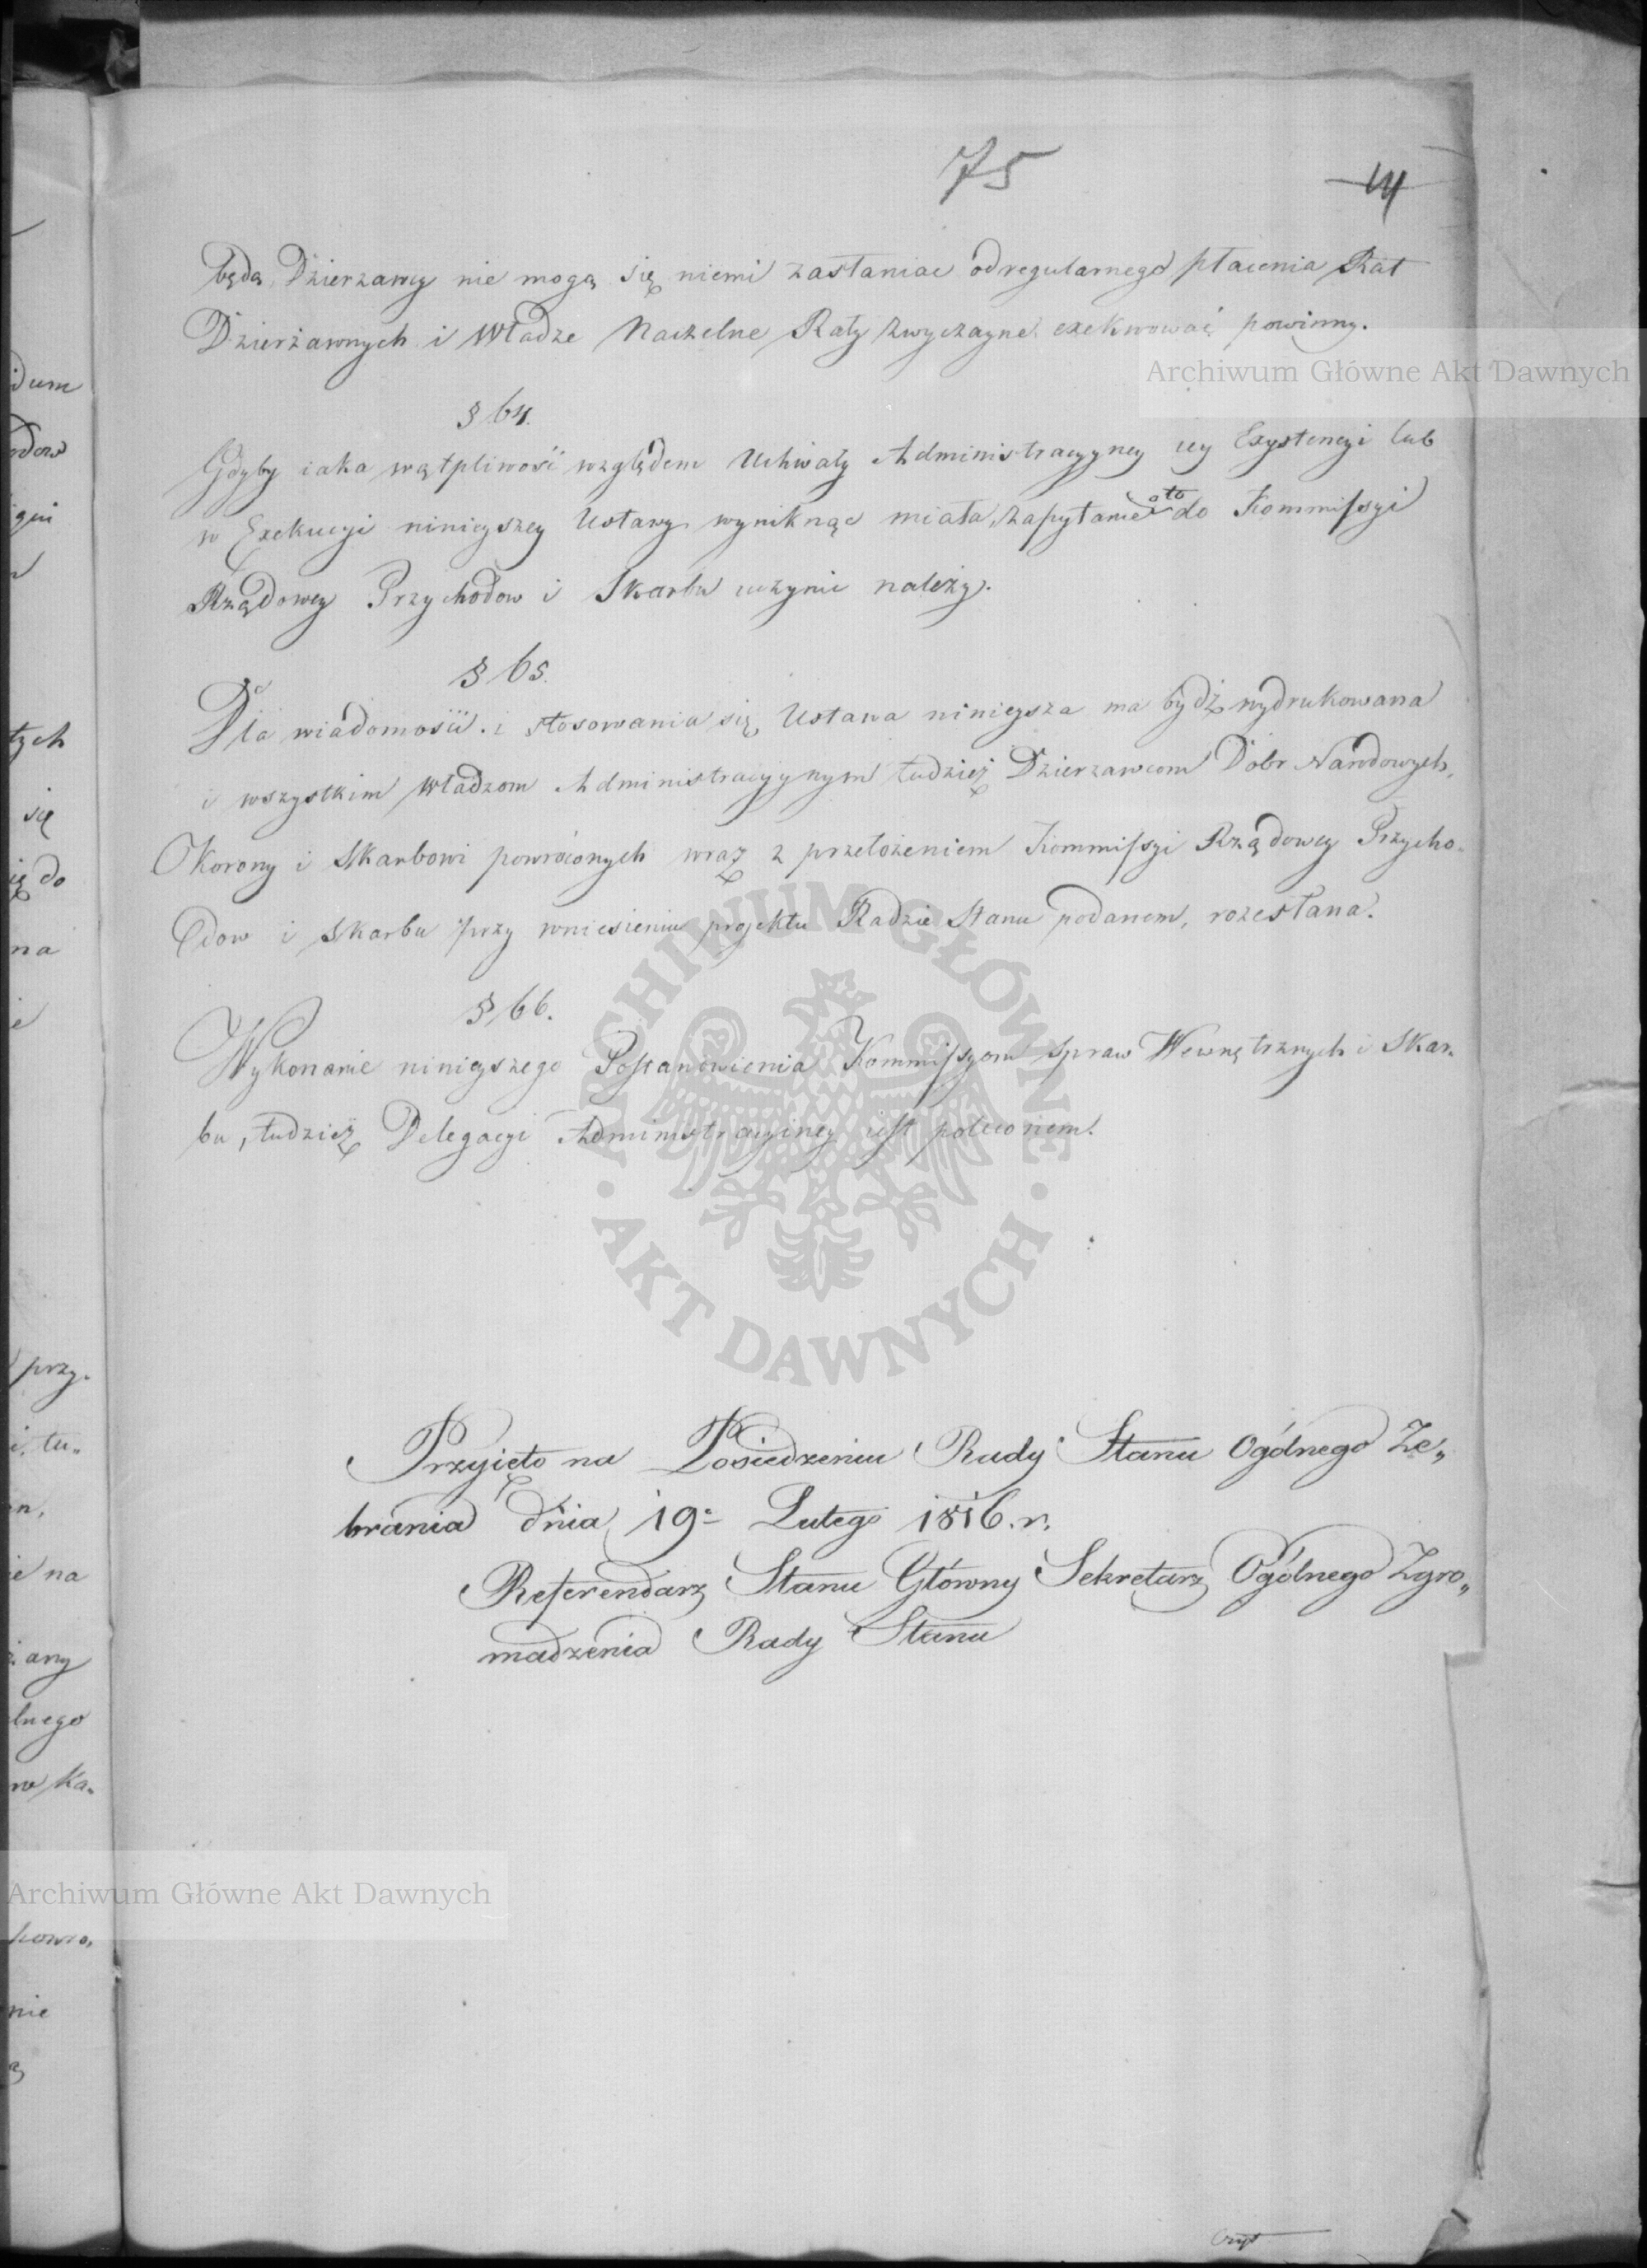 75
14
będą, Dzierzawcy nie mogą się niemi zasłaniac od regularnego płacenia Rat
Dzierżawnych i Władze Naczelne Raty zwyczayne exekwować powinny.
Archiwum Główne Akt Dawnych
§ 64.
Gdyby iaka wątpliwość względem Uchwały Administracyyney iey Exystencyi lub
w Exekucyi ninieyszey Ustawy wyniknąc miała, zapytanie o to do Kommissyi
Rządowey Przychodow i Skarbu uczynic należy.
§ 65.
Dla wiadomości i stosowania się, Ustawa ninieysza ma bydź wydrukowana
i wszystkim Władzom Administracyynym tudzież Dzierzawcom Dobr Narodowych,
Korony i Skarbowi powróconych wraz z przełożeniem Kommissyi Rządowey Przycho-
dow i Skarbu przy wniesieniu projektu Radzie Stanu podanem, rozesłana.
§ 66.
Wykonanie ninieyszego Postanowienia Kommissyom Spraw Wewnętrznych i Skar-
bu, tudzież Delegacyi Administracyiney iest poleconem.
ARCHIWUM GŁÓWNE
AKT DAWNYCH
Przyięto na Posiedzeniu Rady Stanu Ogólnego Ze„
brania dnia 19. Lutego 1816. r.
Referendarz Stanu Główny Sekretarz Ogólnego Zgro„
madzenia Rady Stanu
Archiwum Główne Akt Dawnych
dum
dow
tych
się
ię do
na
przy.
i tu„
ie na
any
lnego
w Ka„
nie